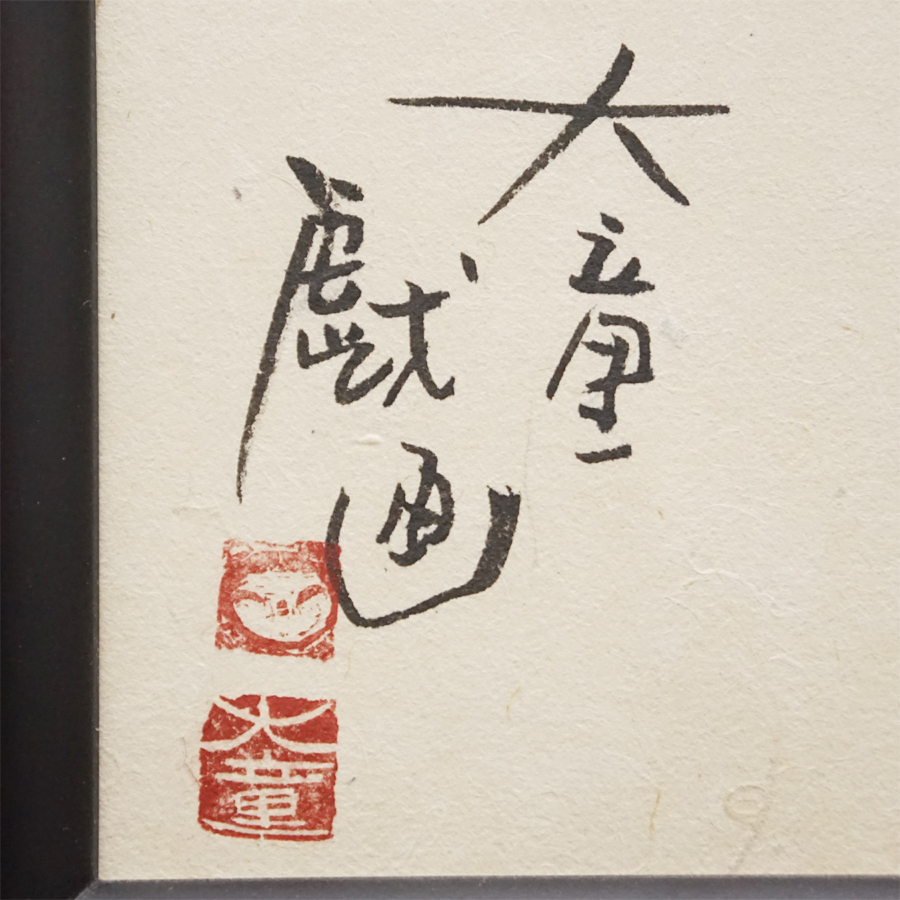 大童
戯画
大童